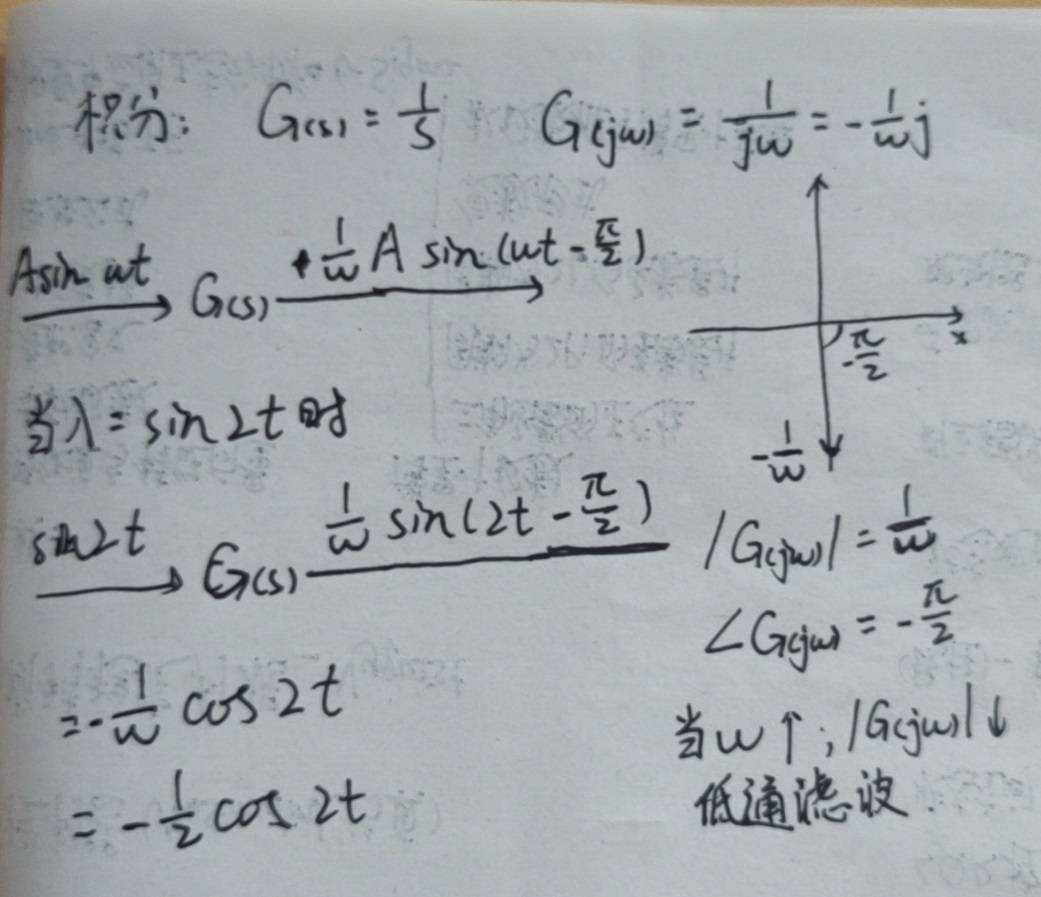 积分: G(s) = 1/s G(jω) = 1/jω = -1/ω j
Asin ωt → G(s) 1/ω A sin(ωt - π/2) →
x
-π/2
-1/ω
当入=sin2t时
sin2t → G(s) 1/ω sin(2t - π/2)
|G(jω)| = 1/ω
∠G(jω) = -π/2
= -1/ω cos2t
= -1/2 cos2t
当ω↑, |G(jω)|↓
低通滤波.